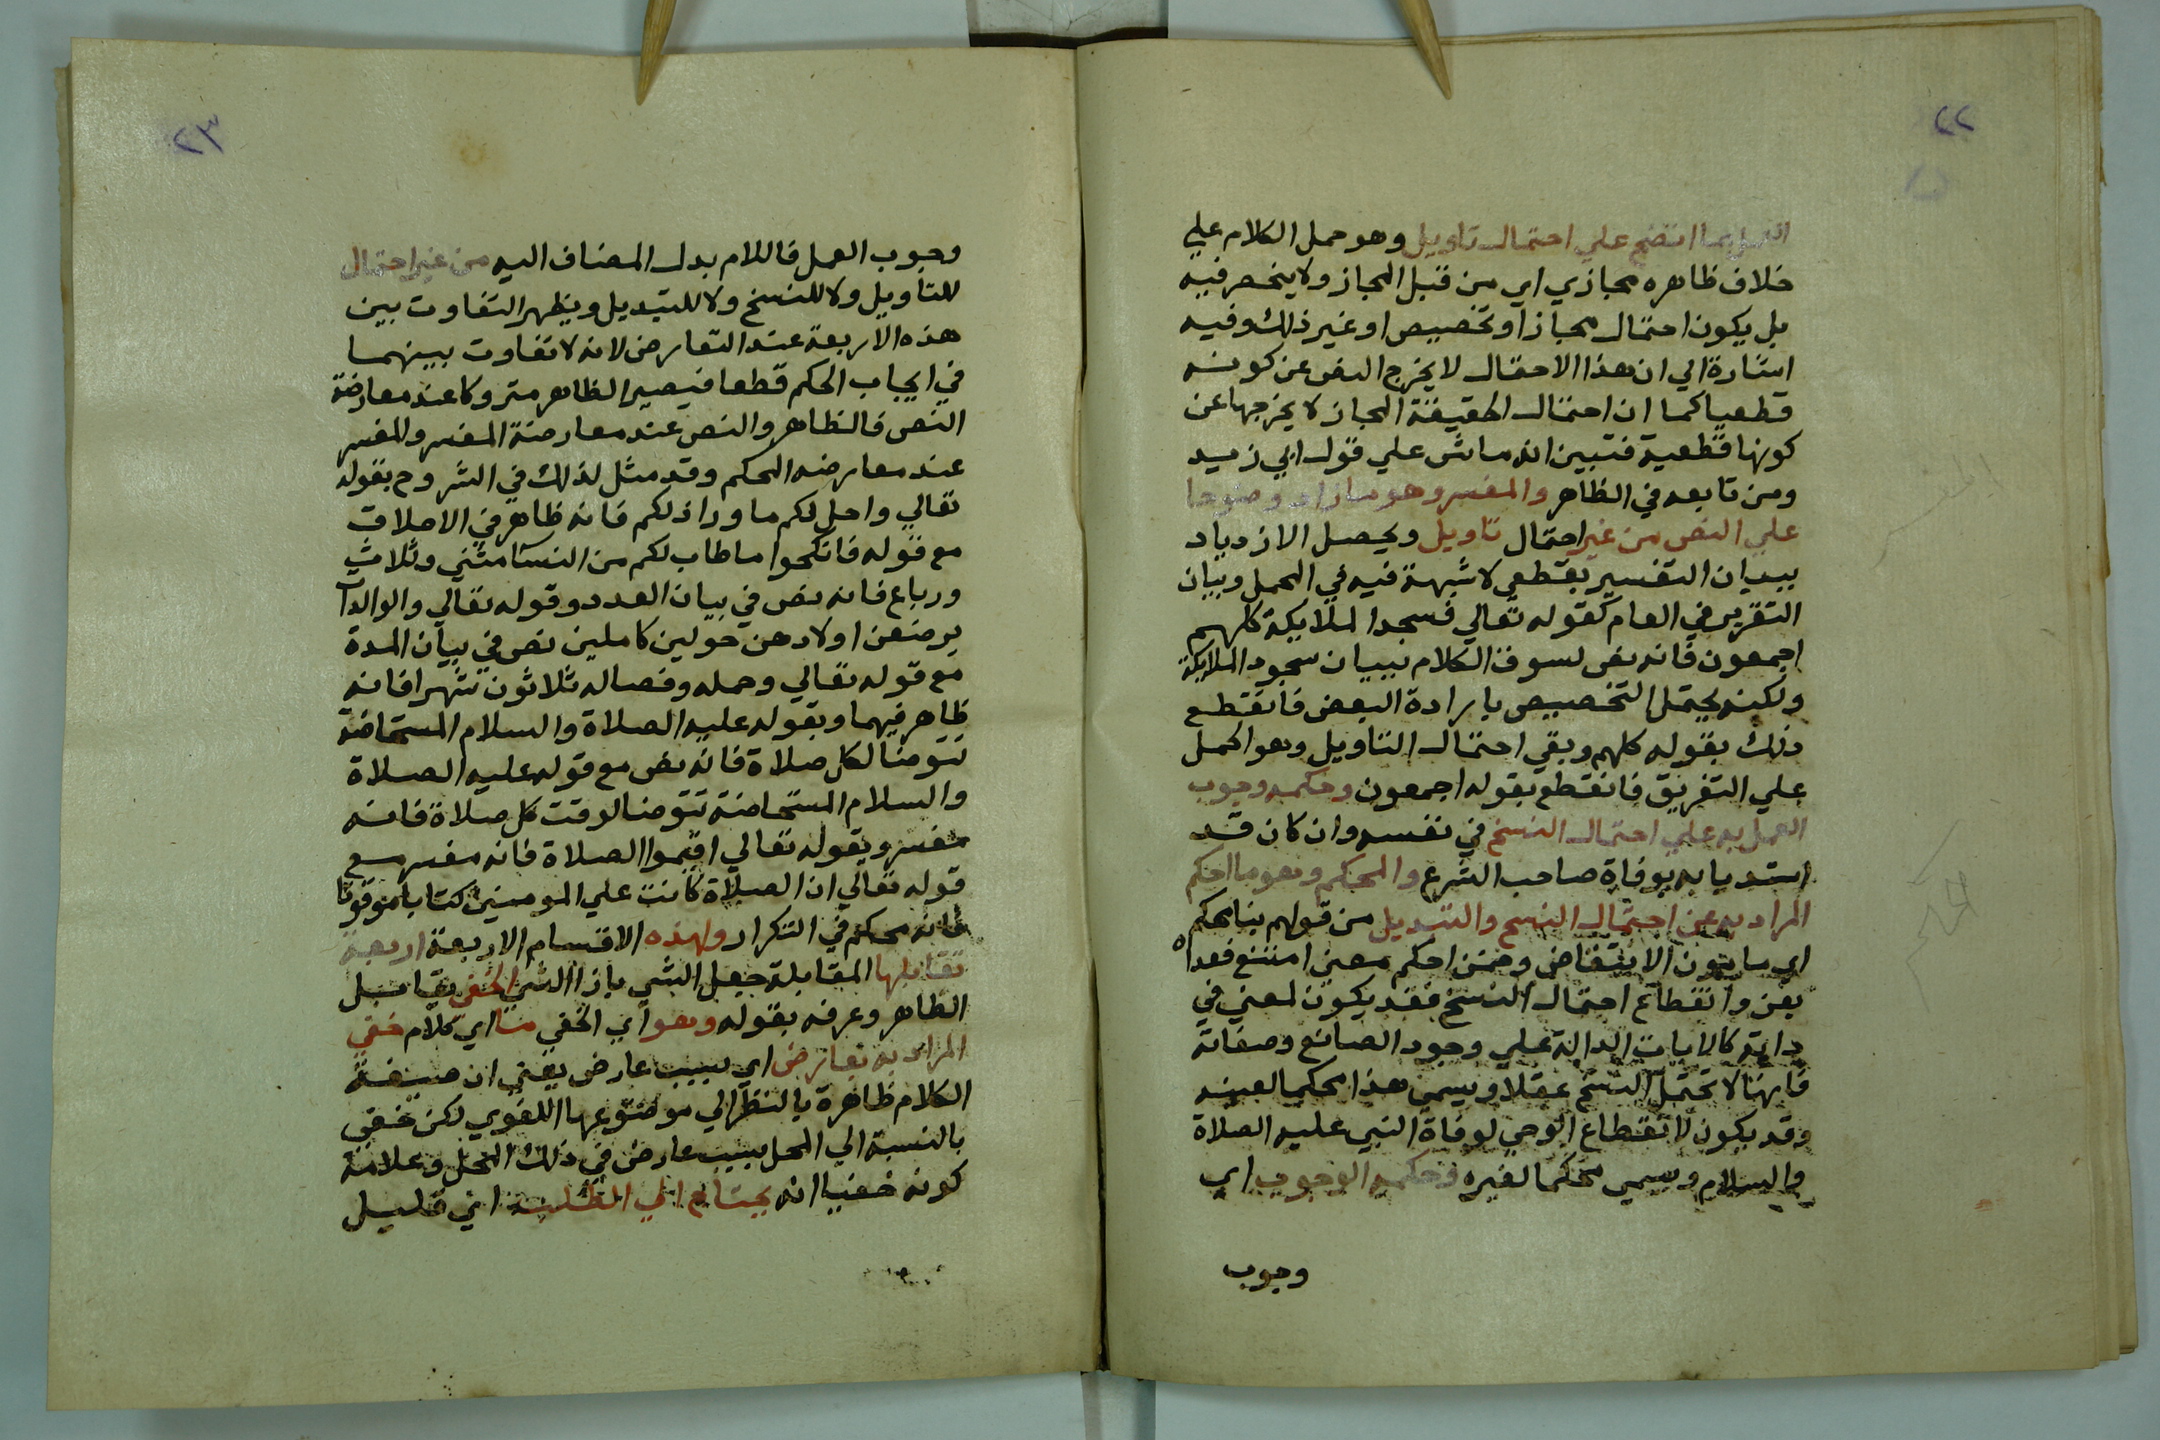 ٢٢
بما اتضح علي احتمال تاويل وهو حمل الكلام علي
خلاف ظاهره مجازي اي من قبل المجاز ولا ينحصر فيه
بل يكون احتمال مجاز او تخصيص او غير ذلك وفيه
اشارة الي ان هذا الاحتمال لا يخرج النص عن كونه
قطعيا كما ان احتمال الحقيقة المجاز لا يخرجها عن
كونها قطعية فتبين انه ماش علي قول ابي زيد
ومن تابعه في الظاهر والمفسر وهو ما زاد وضوحا
علي النص من غير احتمال تاويل ويحصل الازدياد
ببيان التفسير بقطعي لا شبهة فيه في المجمل وبيان
التقرير في العام كقوله تعالي فسجد الملايكة كلهم
اجمعون فانه نص لسوق الكلام نبيان سجود الملايكة
ولكنه يحتمل التخصيص بارادة البعض فانقطع
ذلك بقوله كلهم وبقي احتمال التاويل وهو الحمل
علي التفريق فانقطع بقوله اجمعون وحكمه وجوب
العمل به علي احتمال النسخ في نفسه وان كان قد
انسد بابه بوفاة صاحب الشرع والمحكم وهو ما احكم
المراد به عن احتمال النسخ والتبديل من قولهم بنا محكم
اي مامون الانتقاض وضمن احكم معني امتنع فعداه
بعن وانقطاع احتمال النسخ فقد يكون لمعني في
ذاته كالايات الدالة علي وجود الصانع وصفاته
فانها لا تحتمل النسخ عقلا ويسمي هذا محكما لعينه
وقد يكون لانقطاع الوحي لوفاة النبي عليه الصلاة
والسلام ويسمي محكما لغيره وحكمه الوجوب اي
وجوب
المفسر
المحكم
٢٣
وجوب العمل فاللام بدل المضاف اليه من غير احتمال
للتاويل ولا للنسخ ولا للتبديل ويظهر التفاوت بين
هذه الاربعة عند التعارض لانه لا تفاوت بينهما
في ايجاب الحكم قطعا فيصير الظاهر متروكا عند معارضة
النص فالظاهر والنص عند معارضة المفسر والمفسر
عند معارضه المحكم وقد مثل لذلك في الشروح بقوله
تعالي واحل لكم ما وراذلكم فانه ظاهر في الاطلاق
مع قوله فانكحوا ما طاب لكم من النسا مثني وثلاث
ورباع فانه نص في بيان العدد وقوله تعالي والوالدات
يرضعن اولادهن حولين كاملين نص في بيان المدة
مع قوله تعالي وحمله وفصاله ثلاثون شهرا فانه
ظاهر فيهما وبقوله عليه الصلاة والسلام المستحاضة
تتوضا لكل صلاة فانه نص مع قوله عليه الصلاة
والسلام المستحاضة تتوضا لوقت كل صلاة فانه
مفسر وبقوله تعالي اقيموا الصلاة فانه مفسر مع
قوله تعالي ان الصلاة كانت علي المومنين كتابا موقوتا
فانه محكم في التكرار ولهذه الاقسام الاربعة اربعة
تقابلها المقابلة جعل الشي بازا الشي الخفي يقابل
الظاهر وعرفه بقوله وهو اي الخفي ما اي كلام خفي
المراد به بعارض اي بسبب عارض يعني ان صيغة
الكلام ظاهرة بالنظر الي موضوعها اللغوي لكن خفي
بالنسبة الي المحل بسبب عارض في ذلك المحل وعلامة
كونه خفيا انه يحتاج الي الطلب اي قليل